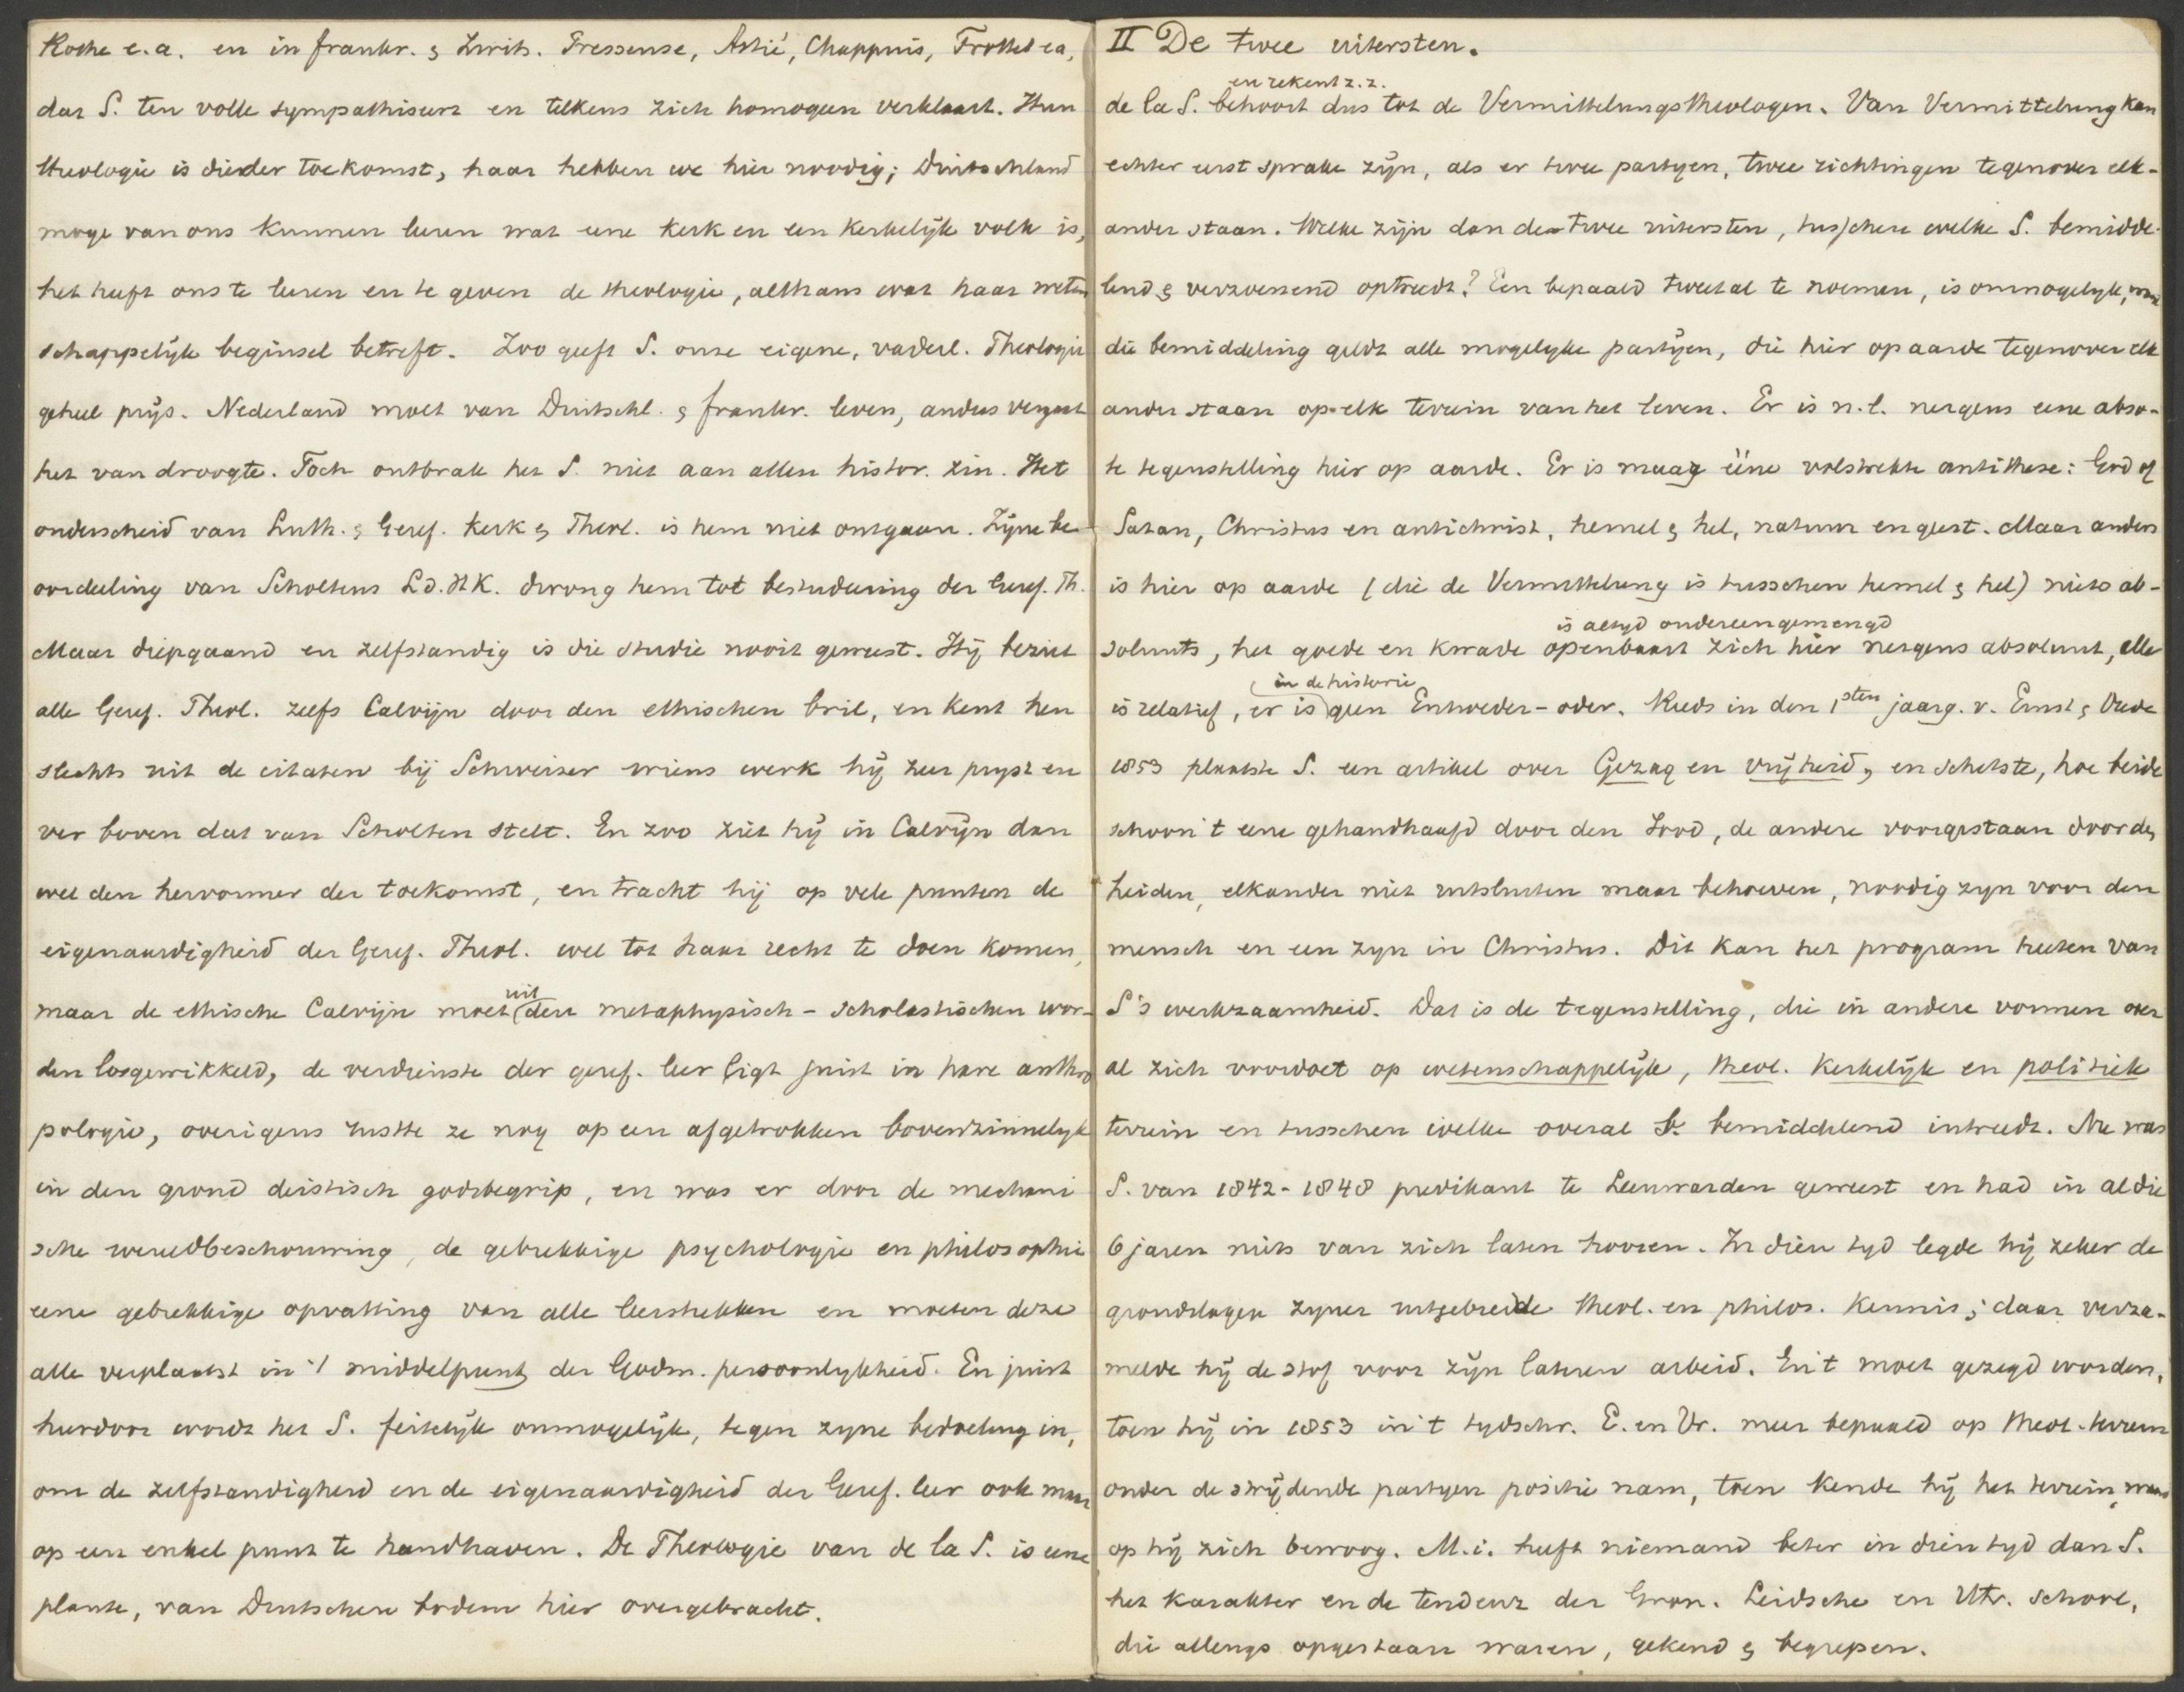 Rothe e.a. en in frankr. & Zwits. Pressense, Astié, Chappuis, Trottet ea,
dar S. ten volle sympathiseert en telkens zich homogeen verklaart. Hun
theologie is die der toekomst, haar hebben we hier noodig; Duitschland
moge van ons kunnen leeren wat eene kerk en een kerkelijk volk is,
het heeft ons te leeren en te geven de theologie, althans wat haar weten
schappelijk beginsel betreft. Zoo geeft S. onze eigene, vaderl. Theologie
geheel prijs. Nederland moet van Duitschl. & frankr. leven, anders vergaat
het van droogte. Toch ontbrak het S. niet aan allen histor. zin. Het
onderscheid van Luth. & Geref. Kerk & Theol. is hem niet ontgaan. Zijne be-
oordeeling van Scholtens L.d.H.K. drong hem tot bestudeering der Geref. Th.
Maar diepgaand en zelfstandig is die studie nooit geweest. Hij beziet
alle Geref. Theol. zelfs Calvijn door den ethischen bril, en kent hen
slechts uit de citaten bij Schweizer wiens werk hij zeer pryst en
ver boven dat van Scholten stelt. En zoo ziet hij in Calvijn dan
wel den hervormer der toekomst, en tracht hij op vele punten de
eigenaardigheid der Geref. Theol. wel tot haar recht te doen komen,
maar de ethische Calvijn moet uit den metaphysisch-scholastischen wor-
den losgewikkeld, de verdienste der geref. leer ligt juist in hare anthro
pologie, overigens rustte ze nog op een afgetrokken bovenzinnelyk
in den grond deistisch godsbegrip, en was er door de mechani
sche wereldbeschouwing, de gebrekkige psychologie en philosophie
eene gebrekkige opvatting van alle leerstukken en moeten deze
alle verplaatst in 't middelpunt der Godm. persoonlykheid. En juist
hierdoor wordt het S. feitelijk onmogelijk, tegen zyne bedoeling in,
om de zelfstandigheid en de eigenaardigheid der Geref. leer ook maar
op een enkel punt te handhaven. De Theologie van de la S. is eene
plante, van Duitschen bodem hier overgebracht.
II De twee uitersten.
en rekent z.z.
de la S. behoort dus tot de Vermittelungstheologen. Van Vermittelung kan
echter eerst sprake zijn, als er twee partyen, twee richtingen tegenover elk-
ander staan. Welke zijn dan de twee uitersten, tusschen welke S. bemidde-
lend & verzoenend optreedt? Een bepaald tweetal te noemen, is onmogelyk, want
die bemiddeling geldt alle mogelyke partijen, die hier op aarde tegenover elk
ander staan op elk terrein van het leven. Er is n.l. nergens eene abso-
te tegenstelling hier op aarde. Er is maar ééne volstrekte antithese: God of
Satan, Christus en antichrist, hemel & hel, natuur en geest. Maar anders
is hier op aarde (die de Vermittelung is tusschen hemel & hel) niets ab-
is altyd ondereengemengd
soluuts, het goede en kwade openbaart zich hier nergens absoluut, alles
in de historie
is relatief, er is geen Entweder-oder. Reeds in den 1sten jaarg. v. Ernst & Vrede
1853 plaatste S. een artikel over Gezag en vrijheid, en schetste, hoe beide
schoon 't eene gehandhaafd door den Jood, de andere voorgestaan door den
heiden, elkander niet uitsluiten maar behoeven, noodig zyn voor den
mensch en een zyn in Christus. Dit kan het program heeten van
S's werkzaamheid. Dat is de tegenstelling, die in andere vormen over
al zich voordoet op wetenschappelijk, theol. kerkelijk en politiek
terrein en tusschen welke overal S. bemiddelend intreedt. Nu was
S. van 1842-1848 predikant te Leeuwarden geweest en had in al die
6 jaren niets van zich laten hooren. In dien tyd legde hij zeker de
grondslagen zyner uitgebreide theol. en philos. kennis; daar verza-
melde hij de stof voor zijn lateren arbeid. En 't moet gezegd worden,
toen hij in 1853 in 't tydschr. E. en Vr. meer bepaald op theol. terrein
onder de strijdende partyen positie nam, toen kende hij het terrein, waar
op hij zich bewoog. M.i. heeft niemand beter in dien tyd dan S.
het karakter en de tendenz der Gron. Leidsche en Utr. school,
die allengs opgestaan waren, gekend & begrepen.